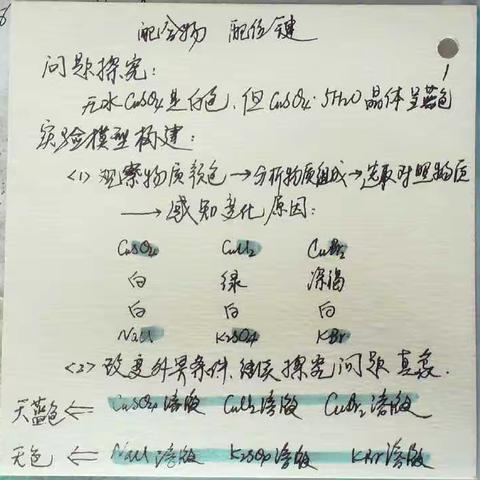 配合物 配位键
问题探究:
无水CuSO4是白色,但CuSO4·5H2O晶体呈蓝色
实验模型构建:
<1> 观察物质颜色→分析物质组成→选取对照物质
→感知变化原因:
CuSO4 CuCl2 CuBr2
白 绿 深褐
白 白 白
NaCl K2SO4 KBr
<2> 改变外界条件,继续探究问题真象.
天蓝色⇐ CuSO4溶液 CuCl2溶液 CuBr2溶液
无色⇐ NaCl溶液 K2SO4溶液 KBr溶液